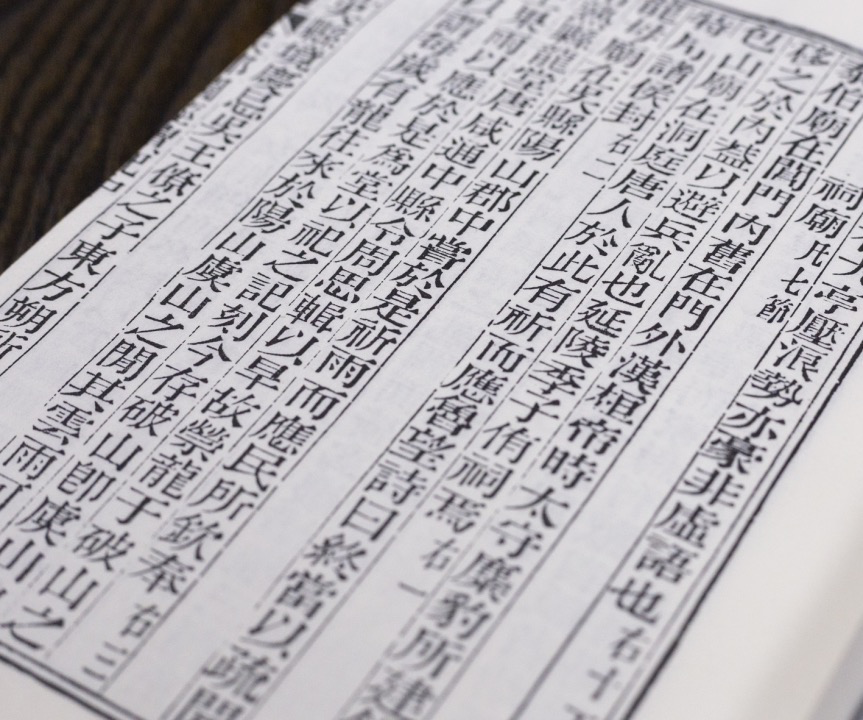 大亭壓浪勢亦豪非虛語也右十
祠廟凡七節
泰伯廟在閶門內舊在門外漢桓帝時太守麋豹所建
移之於內盛以避兵亂也延陵季子侑祠焉右一
包山廟在洞庭唐人於此有祈而應魯望詩曰終當以疏聞
特用諸侯封右二
龍母廟在吳縣陽山郡中嘗於是祈雨而應民所欽奉右三
熟縣龍堂唐咸通中縣令周思輯以旱故縈龍于破山之
果雨以應於是為堂以祀之記刻今存破山即虞山
謂每歲有龍往來於陽山虞山之間其雲雨可
慶忌吳王僚之子東方朔所